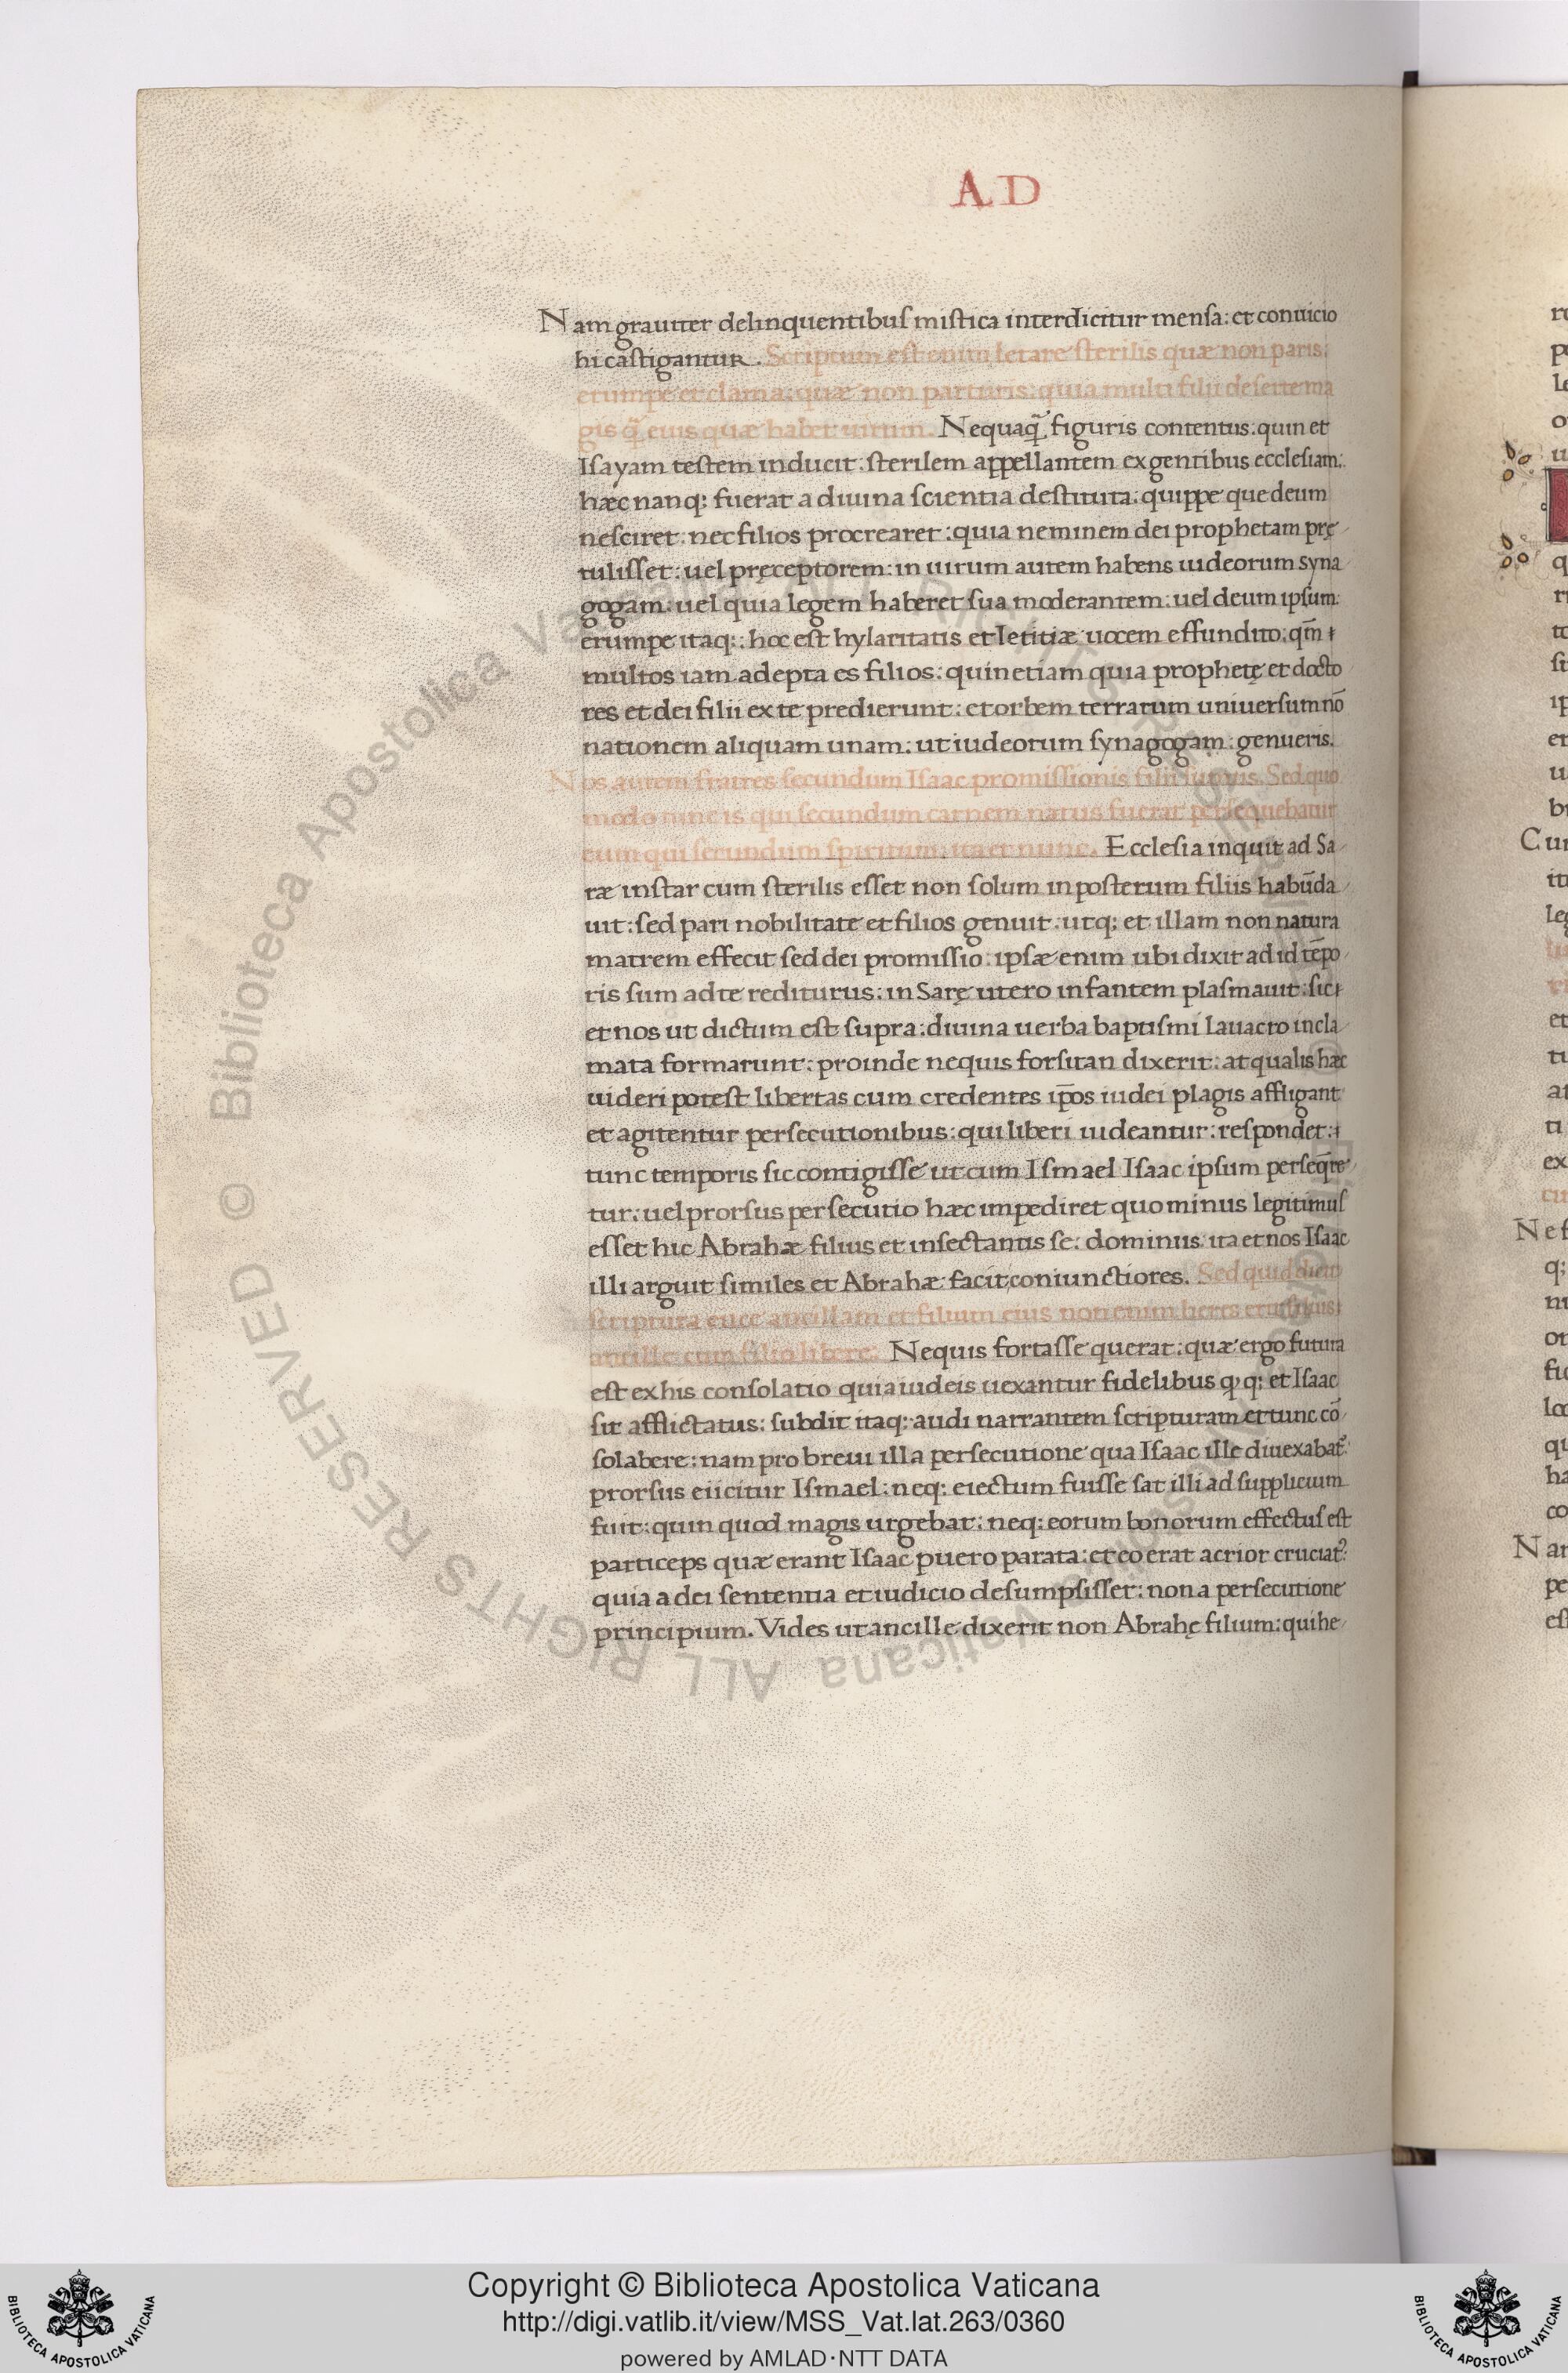 A D
Nam grauiter delinquentibus mistica interdicitur mensa: et conuicio
hi castigantur. Scriptum est enim letare sterilis quæ non paris:
erumpe et clama: quæ non parturis: quia multi filii deserte ma
gis q̃ eius quæ habet uirum. Nequaq̃ figuris contentus: quin et
Isayam testem inducit: sterilem appellantem ex gentibus ecclesiam:
hæc nanq; fuerat a diuina scientia destituta: quippe que deum
nesciret: nec filios procrearet: quia neminem dei prophetam prę
tulisset: uel pręceptorem: in uirum autem habens iudeorum syna
gogam: uel quia legem haberet sua moderantem: uel deum ipsum:
erumpe itaq;: hoc est hylaritatis et letitiæ uocem effundito: qm̃
multos iam adepta es filios: quin etiam quia prophetę et docto
res et dei filii ex te predierunt: et orbem terrarum uniuersum nō
nationem aliquam unam: ut iudeorum synagogam: genueris.
Nos autem fratres secundum Isaac promissionis filii sumus. Sed quo
modo tunc is qui secundum carnem natus fuerat persequebatur
eum qui secundum spiritum: ita et nunc. Ecclesia inquit ad Sa
ræ instar cum sterilis esset non solum in posterum filiis habūda
uit: sed pari nobilitate et filios genuit: utq; et illam non natura
matrem effecit sed dei promissio: ipsæ enim ubi dixit ad id tēpo
ris sum ad te rediturus: in Sarę utero infantem plasmauit: sic
et nos ut dictum est supra: diuina uerba baptismi lauacro incla
mata formarunt: proinde nequis forsitan dixerit: at qualis hæc
uideri potest libertas cum credentes ip̄os iudei plagis affligant
et agitentur persecutionibus: qui liberi uideantur: respondet:
tunc temporis sic contigisse ut cum Ismael Isaac ipsum perseq̄re
tur: uel prorsus persecutio hæc impediret quo minus legitimus
esset hic Abrahæ filius et insectantis se: dominus: ita et nos Isaac
illi arguit similes et Abrahæ facit coniunctiores. Sed quid dicit
scriptura eiice ancillam et filium eius non enim heres erit filius
ancille cum filio libere. Nequis fortasse querat: quæ ergo futura
est ex his consolatio quia iudeis uexantur fidelibus qꝫ q; et Isaac
sit afflictatus: subdit itaq: audi narrantem scripturam et tunc cō
solabere: nam pro breui illa persecutione qua Isaac ille diuexabat᷑
prorsus eiicitur Ismael: neq; eiectum fuisse sat illi ad supplicium
fuit: quin quod magis urgebat: neq; eorum bonorum effectus est
particeps quæ erant Isaac puero parata: et eo erat acrior cruciat᷒:
quia a dei sententia et iudicio desumpsisset: non a persecutione
principium. Vides ut ancille dixerit non Abrahę filium: qui he
Copyright © Biblioteca Apostolica Vaticana
http://digi.vatlib.it/view/MSS_Vat.lat.263/0360
powered by AMLAD·NTT DATA
BIBLIOTECA APOSTOLICA VATICANA
BIBLIOTECA APOSTOLICA VATICANA
© Biblioteca Apostolica Vaticana ALL RIGHTS RESERVED